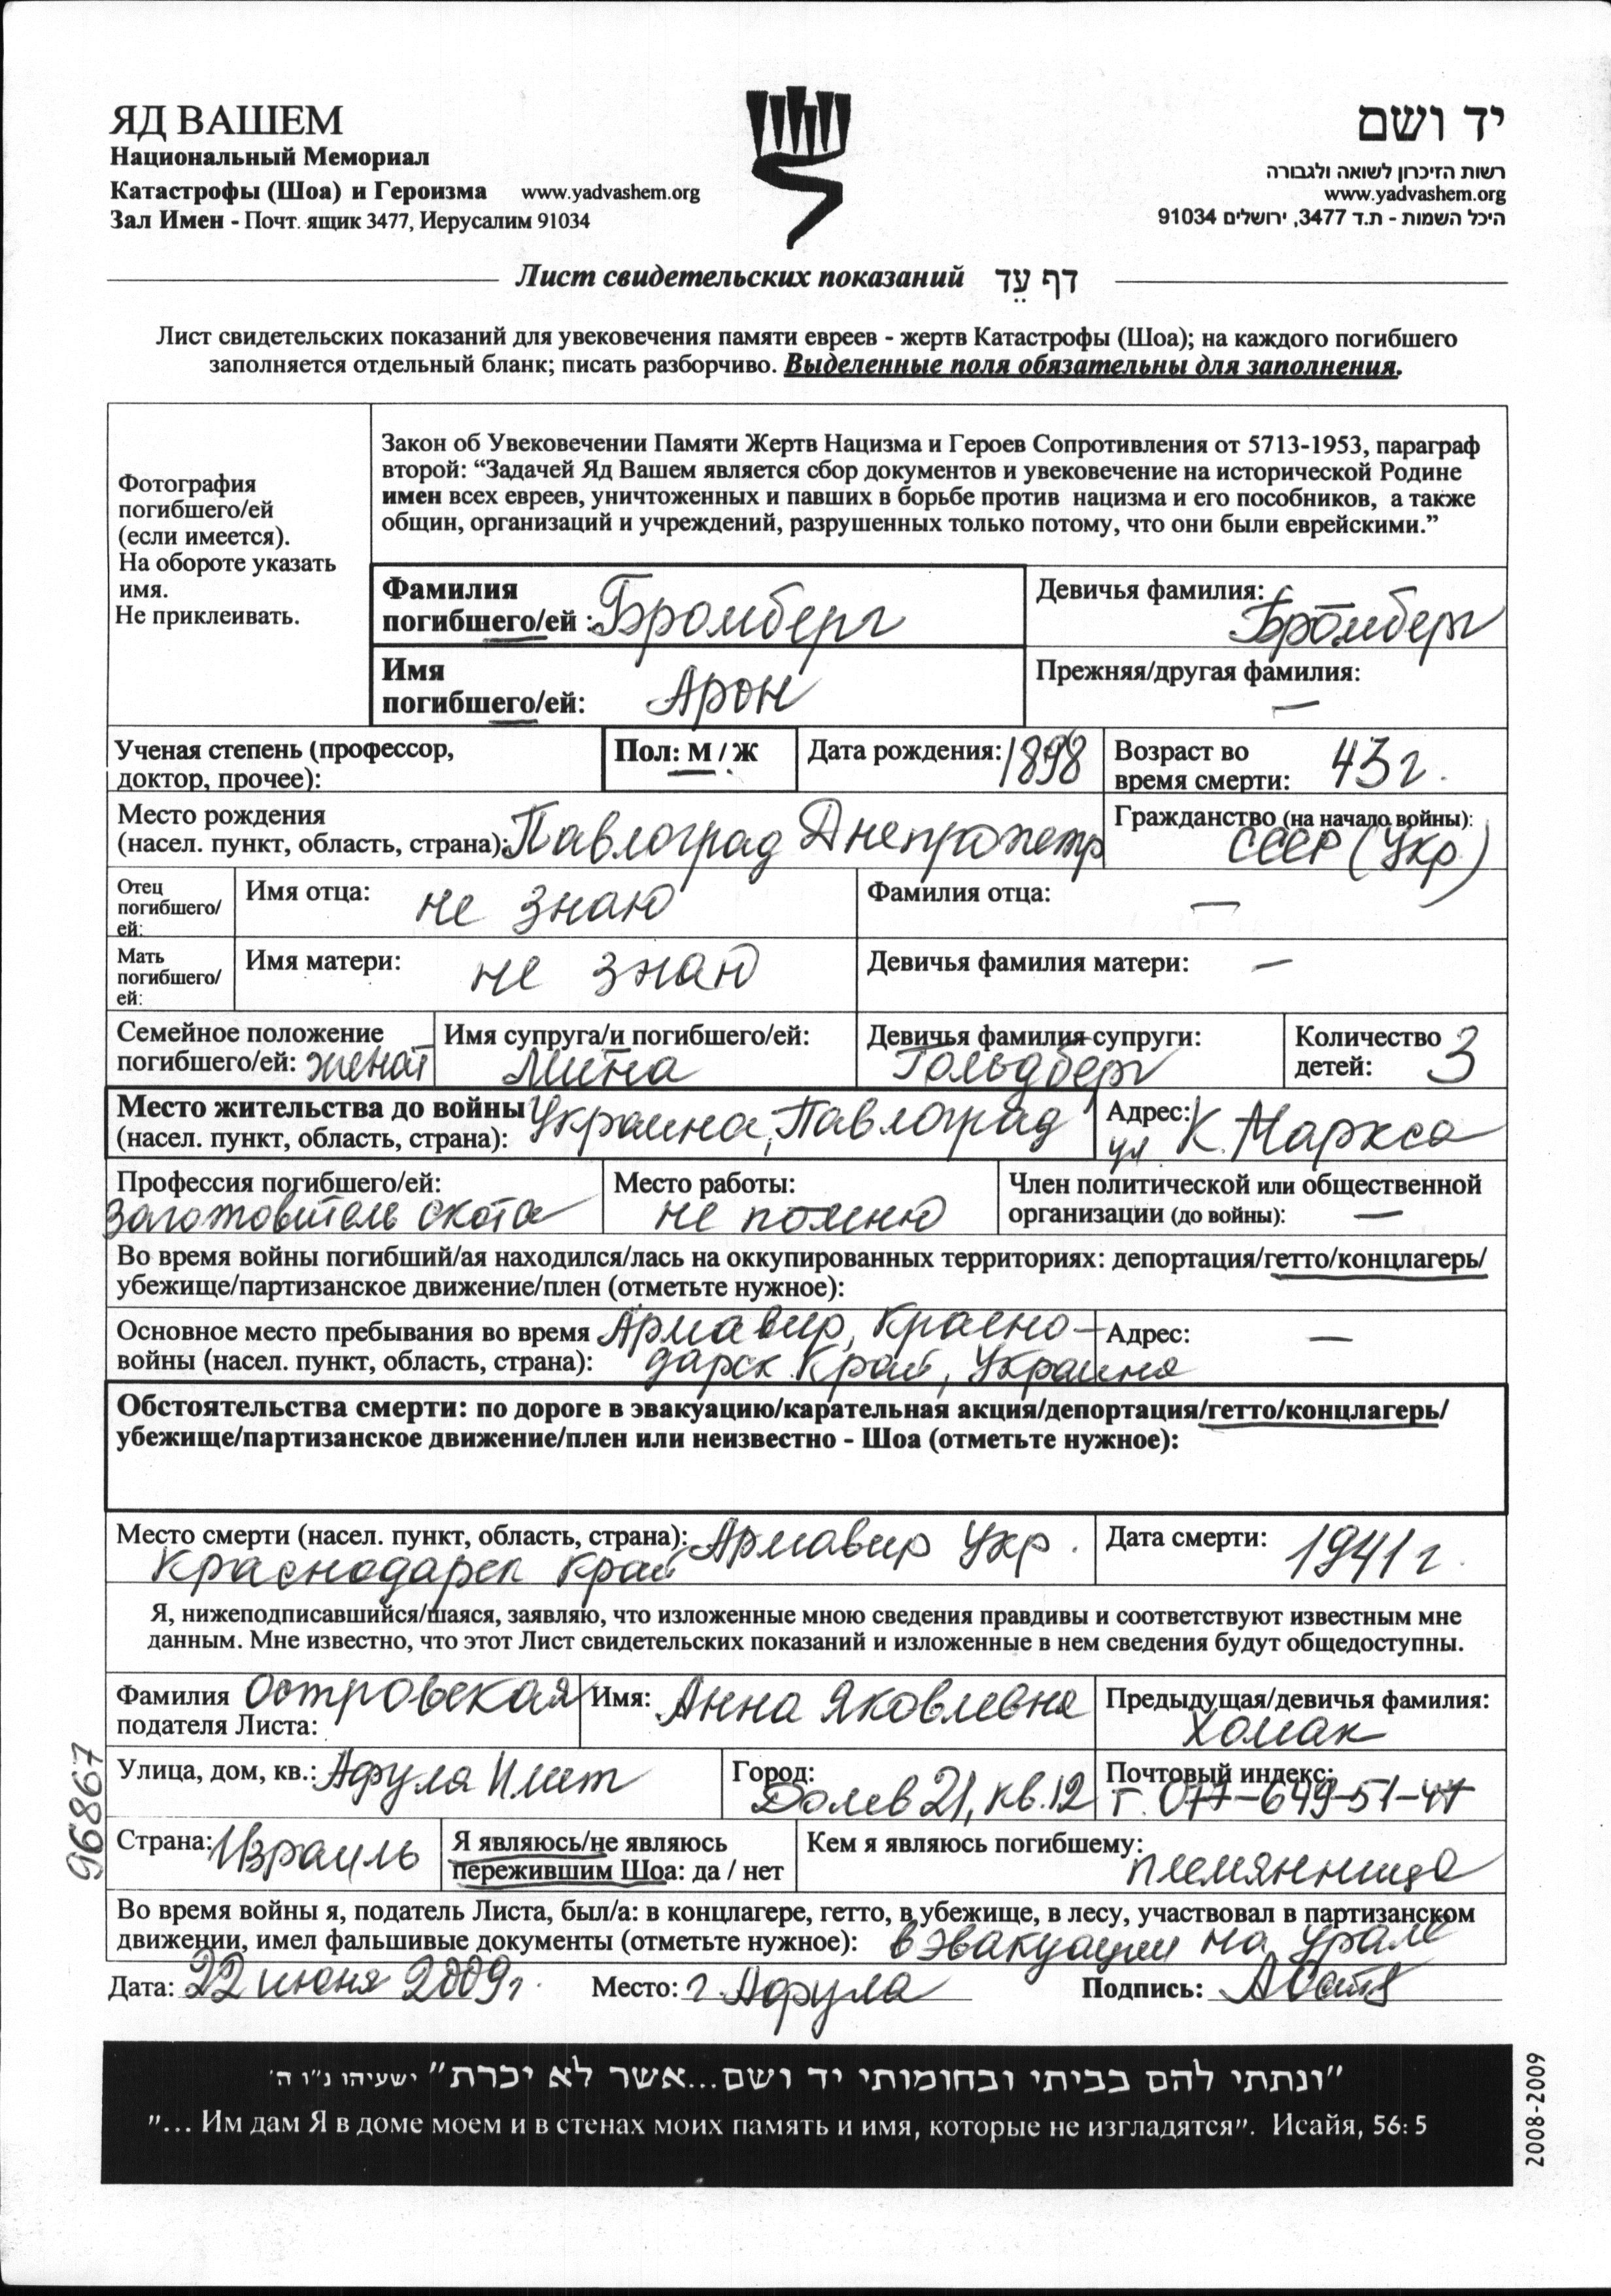 ЯД ВАШЕМ
Национальный Мемориал
Катастрофы (Шоа) и Героизма www.yadvashem.org
Зал Имен - Почт. ящик 3477, Иерусалим 91034
יד ושם
רשות הזיכרון לשואה ולגבורה
www.yadvashem.org
היכל השמות - ת.ד 3477, ירושלים 91034
Лист свидетельских показаний דף עֵד
Лист свидетельских показаний для увековечения памяти евреев - жертв Катастрофы (Шоа); на каждого погибшего
заполняется отдельный бланк; писать разборчиво. Выделенные поля обязательны для заполнения.
Фотография
погибшего/ей
(если имеется).
На обороте указать
имя.
Не приклеивать.
Закон об Увековечении Памяти Жертв Нацизма и Героев Сопротивления от 5713-1953, параграф
второй: “Задачей Яд Вашем является сбор документов и увековечение на исторической Родине
имен всех евреев, уничтоженных и павших в борьбе против нацизма и его пособников, а также
общин, организаций и учреждений, разрушенных только потому, что они были еврейскими.”
Фамилия
погибшего/ей : Бромберг
Девичья фамилия:
Бромберг
Имя
погибшего/ей: Арон
Прежняя/другая фамилия:
—
Ученая степень (профессор,
доктор, прочее):
Пол: М / Ж
Дата рождения: 1898
Возраст во
время смерти: 43 г.
Место рождения
(насел. пункт, область, страна): Павлоград Днепропетр
Гражданство (на начало войны):
СССР (Укр)
Отец
погибшего/
ей:
Имя отца: не знаю
Фамилия отца: —
Мать
погибшего/
ей:
Имя матери: не знаю
Девичья фамилия матери: —
Семейное положение
погибшего/ей: женат
Имя супруга/и погибшего/ей:
Мина
Девичья фамилия супруги:
Гольдберг
Количество
детей: 3
Место жительства до войны Украина, Павлоград
(насел. пункт, область, страна):
Адрес:
ул К. Маркса
Профессия погибшего/ей:
Заготовитель скота
Место работы:
не помню
Член политической или общественной
организации (до войны): —
Во время войны погибший/ая находился/лась на оккупированных территориях: депортация/гетто/концлагерь/
убежище/партизанское движение/плен (отметьте нужное):
Основное место пребывания во время Армавир, Красно-
войны (насел. пункт, область, страна): дарск. Край, Украина
Адрес: —
Обстоятельства смерти: по дороге в эвакуацию/карательная акция/депортация/гетто/концлагерь/
убежище/партизанское движение/плен или неизвестно - Шоа (отметьте нужное):
Место смерти (насел. пункт, область, страна): Армавир Укр.
Краснодарск край
Дата смерти: 1941 г.
Я, нижеподписавшийся/шаяся, заявляю, что изложенные мною сведения правдивы и соответствуют известным мне
данным. Мне известно, что этот Лист свидетельских показаний и изложенные в нем сведения будут общедоступны.
Фамилия Островская
подателя Листа:
Имя: Анна Яковлевна
Предыдущая/девичья фамилия:
Хомак
Улица, дом, кв.: Афула Илит
Город:
Долев 21, кв. 12
Почтовый индекс:
т. 077-649-51-47
Страна: Израиль
Я являюсь/не являюсь
пережившим Шоа: да / нет
Кем я являюсь погибшему:
племянница
Во время войны я, податель Листа, был/а: в концлагере, гетто, в убежище, в лесу, участвовал в партизанском
движении, имел фальшивые документы (отметьте нужное): в эвакуации на Урале
Дата: 22 июня 2009 г. Место: г. Афула Подпись:
96867
"ונתתי להם בביתי ובחומותי יד ושם...אשר לא יכרת" ישעיהו נ"ו ה'
"... Им дам Я в доме моем и в стенах моих память и имя, которые не изгладятся". Исайя, 56: 5
2008-2009